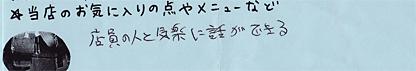 ☆当店のお気に入りの点やメニューなど
店員の人と気楽に話ができる